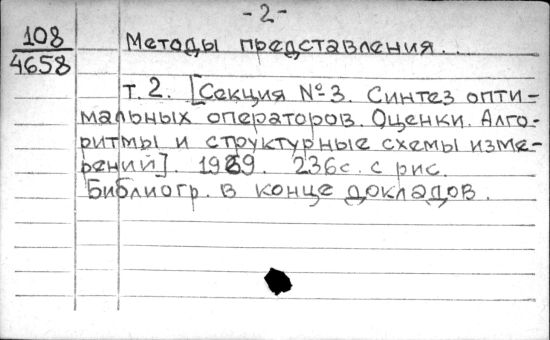 -2-
108
4658
Методы представления..
т. 2. [Секция № 3. Синтез опти-
мальных операторов. Оценки. Алго-
ритмы и структурные схемы изме-
рений]. 1969. 236с. с рис.
Библиогр. в конце докладов.